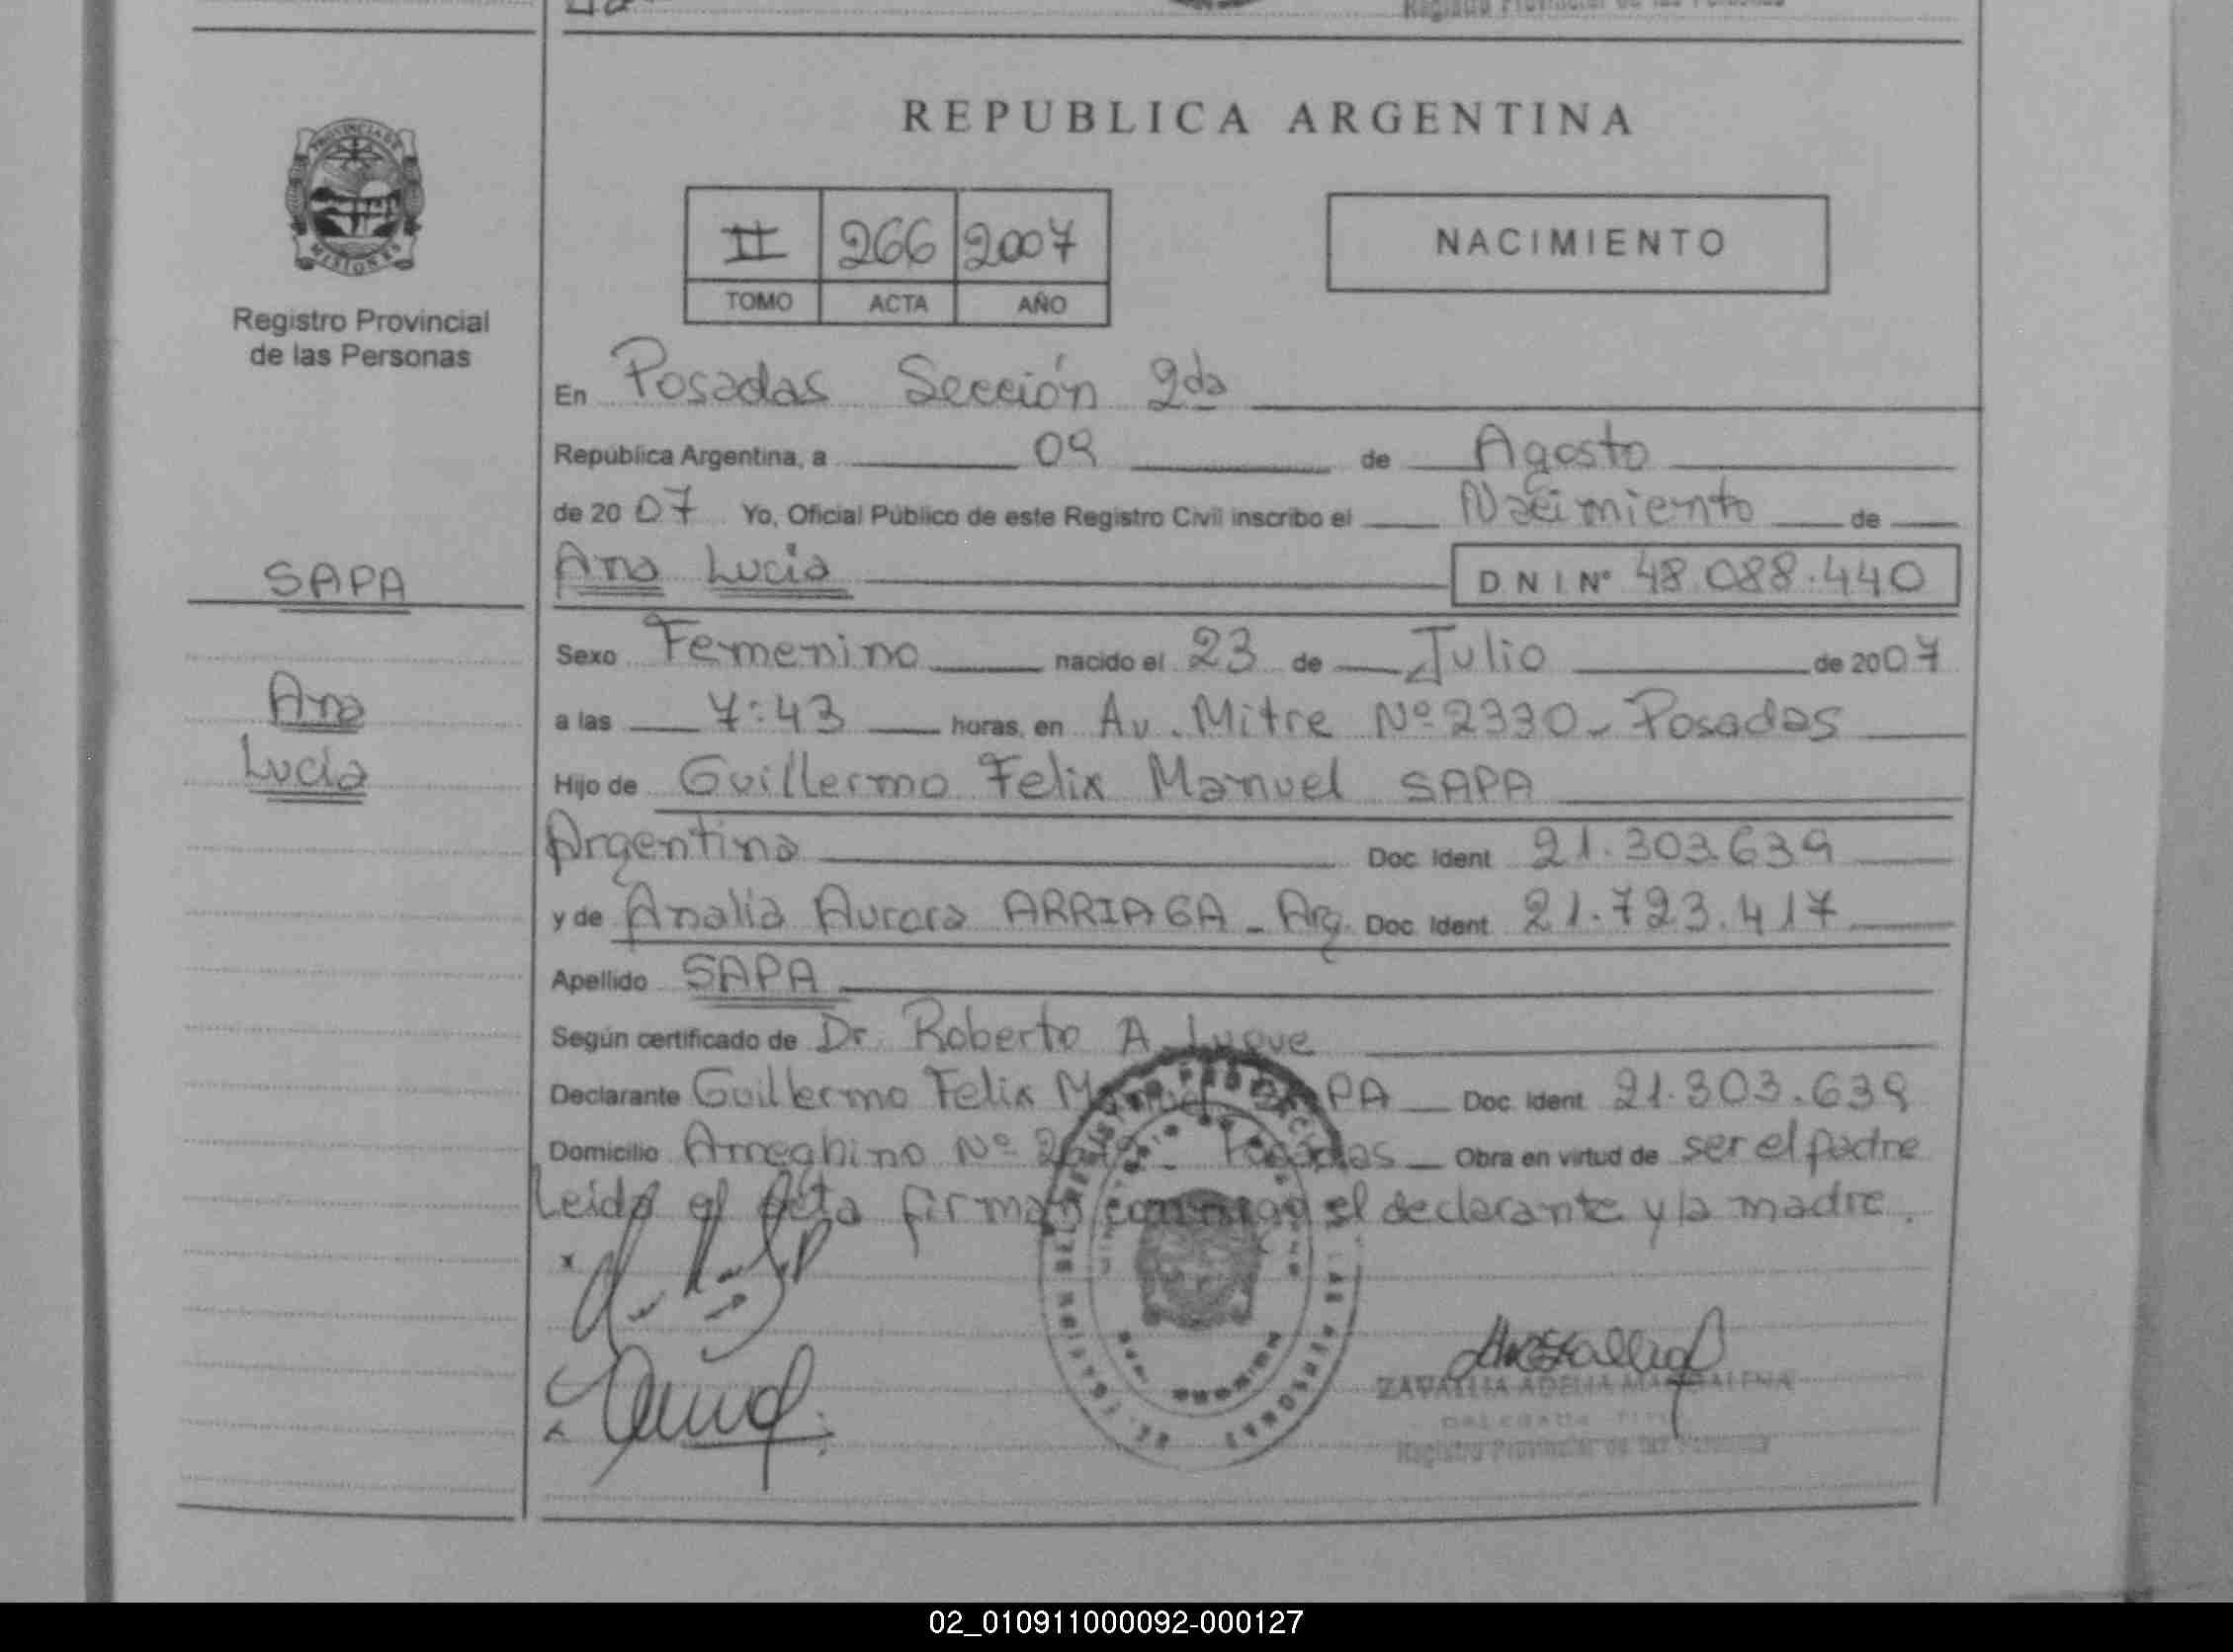 REPUBLICA ARGENTINA
PROVINCIA DE
MISIONES
Registro Provincial
de las Personas
II 266 2007
TOMO ACTA AÑO
NACIMIENTO
En Posadas Sección 2da
República Argentina, a 09 de Agosto
de 20 07 Yo, Oficial Público de este Registro Civil inscribo el Nacimiento de
SAPA
Ana Lucia D N I Nº 48.088.440
Sexo Femenino nacido el 23 de Julio de 2007
Ana
Lucia
a las 7:43 horas, en Av. Mitre Nº 2330 - Posadas
Hijo de Guillermo Felix Manuel SAPA
Argentina Doc. Ident 21.303.639
y de Analia Aurora ARRIAGA - Arg. Doc. Ident 21.723.417
Apellido SAPA
Según certificado de Dr. Roberto A. Luque
Declarante Guillermo Felix Manuel SAPA Doc. Ident 21.303.639
Domicilio Ameghino Nº Posadas - Obra en virtud de ser el padre
Leida el Acta firman conmigo el declarante y la madre.
ZAVALLIA ADELIA MAGDALENA
Registro Provincial de las Personas
02_010911000092-000127